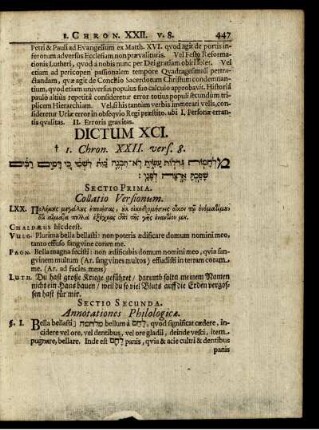 1. CHRON. XXII. v. 8. 447
Petri & Pauli ad Evangelium ex Matth. XVI. quod agit de portis in-
fernorum adversus Ecclesiam non prævalituris. Vel Festo Reforma-
tionis Lutheri, quod a nobis nunc per Dei gratiam observ Vel
etiam ad pericopen passionalem tempore Quadragesimali pertractan-
dam, quæ agit de Concilio Sacerdotum Christum condemnantium.
Vel etiam quod universus populus suo calculo approbavit. Historia
paulo altius repetita consideretur error totius populi secundum tri-
plicem Hierarchiam. Vel si his tantum verbis immorari velis, con-
sideretur Uriæ error in obsequio Regi præstito, ubi I. Personæ erran-
tis qualitas. II. Erroris gravitas.
DICTUM XCI.
† 1. Chron. XXII. vers. 8.
SECTIO PRIMA.
Collatio Versionum.
LXX. Πολέμους μεγάλους ἐποίησας, οὐκ οἰκοδομήσεις οἶκον τῷ ὀνόματί μου
ὅτι αἵματα πολλὰ ἐξέχεας ἐπὶ τῆς γῆς ἐναντίον μου.
CHALDÆUS hic deest.
VULG. Plurima bella bellasti: non poteris ædificare domum nomini meo,
tanto effuso sangvine coram me.
PAGN. Bella magna fecisti: non ædificabis domum nomini meo, quia san-
gvinem multum (Ar. sangvines multos) effudisti in terram coram
me. (Ar. ad facies meas)
LUTH. Du hast große Kriege geführet/ darumb solt du meinem Namen
nicht ein Hauß bauen/ weil du so viel Bluts auff die Erden vergos-
sen hast für mir.
SECTIO SECUNDA.
Annotationes Philologicæ.
§. I. Bella bellasti; מלחמה bellum à לחם, quod significat cædere, in-
cidere vel ore, vel dentibus, vel ore gladii, deinde vesci, item,
pugnare, bellare. Inde est לחם panis, qvia & acie cultri & dentibus
panis